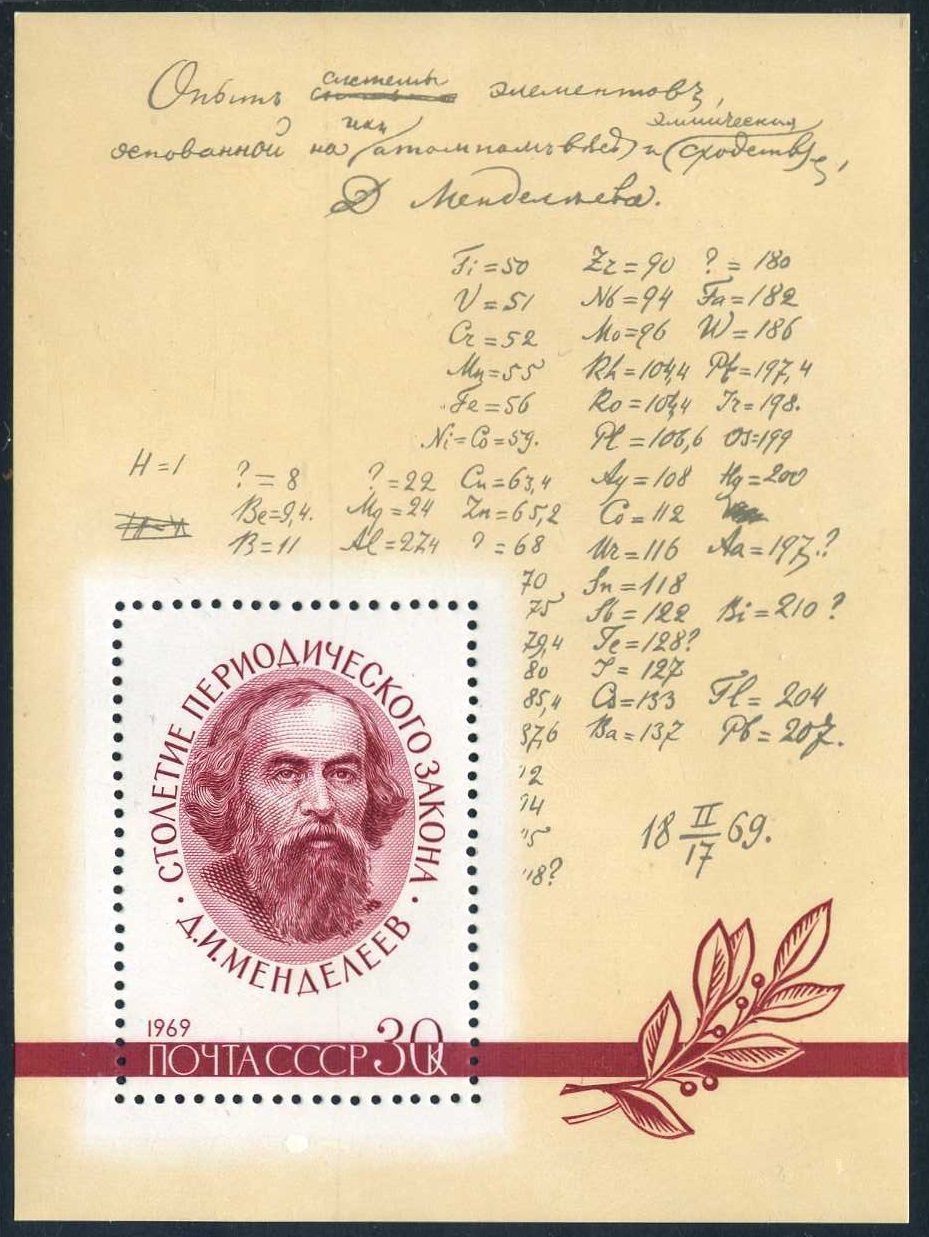 Опытъ системы элементовъ,
основанной на атомномъ вѣсѣ и химическомъ сходствѣ,
Д Менделѣева.
Ti = 50 Zr = 90 ? = 180
V = 51 Nb = 94 Ta = 182
Cr = 52 Mo = 96 W = 186
Mn = 55 Rh = 104,4 Pt = 197,4
Fe = 56 Ro = 104,4 Ir = 198.
Ni = Co = 59. Pl = 106,6 Os = 199
H = 1 ? = 8 ? = 22 Cu = 63,4 Ag = 108 Hg = 200
Be = 9,4. Mg = 24 Zn = 65,2 Cd = 112
B = 11 Al = 27,4 ? = 68 Ur = 116 Au = 197.?
70 Sn = 118
75 Sb = 122 Bi = 210?
79,4 Te = 128?
80 J = 127
85,4 Cs = 133 Tl = 204
87,6 Ba = 137 Pb = 207.
92
94
95
118?
18 II/17 69.
СТОЛЕТИЕ ПЕРИОДИЧЕСКОГО ЗАКОНА
· Д.И.МЕНДЕЛЕЕВ ·
1969
ПОЧТА СССР 30к